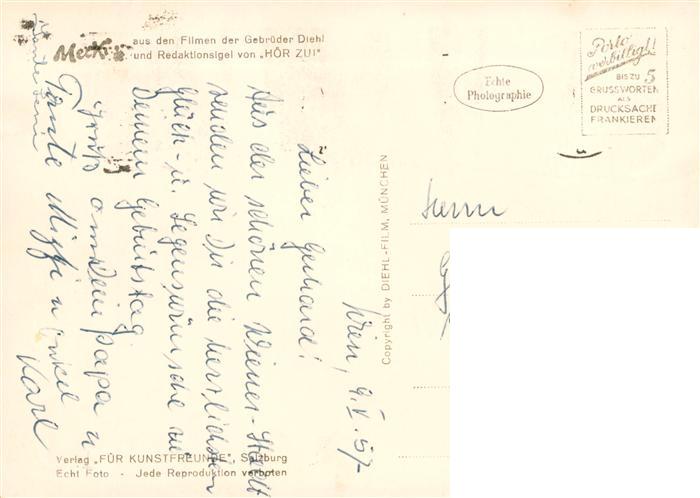 Mecki aus den Filmen der Gebrüder Diehl
und Redaktionsigel von „HÖR ZU!"
Echte
Photographie
Porto
verbilligt!
BIS ZU 5
GRUSSWORTEN
ALS
DRUCKSACHE
FRANKIEREN
Copyright by DIEHL-FILM, MÜNCHEN
Herrn
Wien, 9.V.57
Lieber Gerhard!
Aus der schönen Wiener-Stadt
senden wir Dir die herzlichsten
Glück- u. Segenswünsche zu
Deinem Geburtstag.
Gruß an Dein Papa u
Tante Mizzi u Onkel
Karl
Verlag „FÜR KUNSTFREUNDE", Salzburg
Echt Foto - Jede Reproduktion verboten